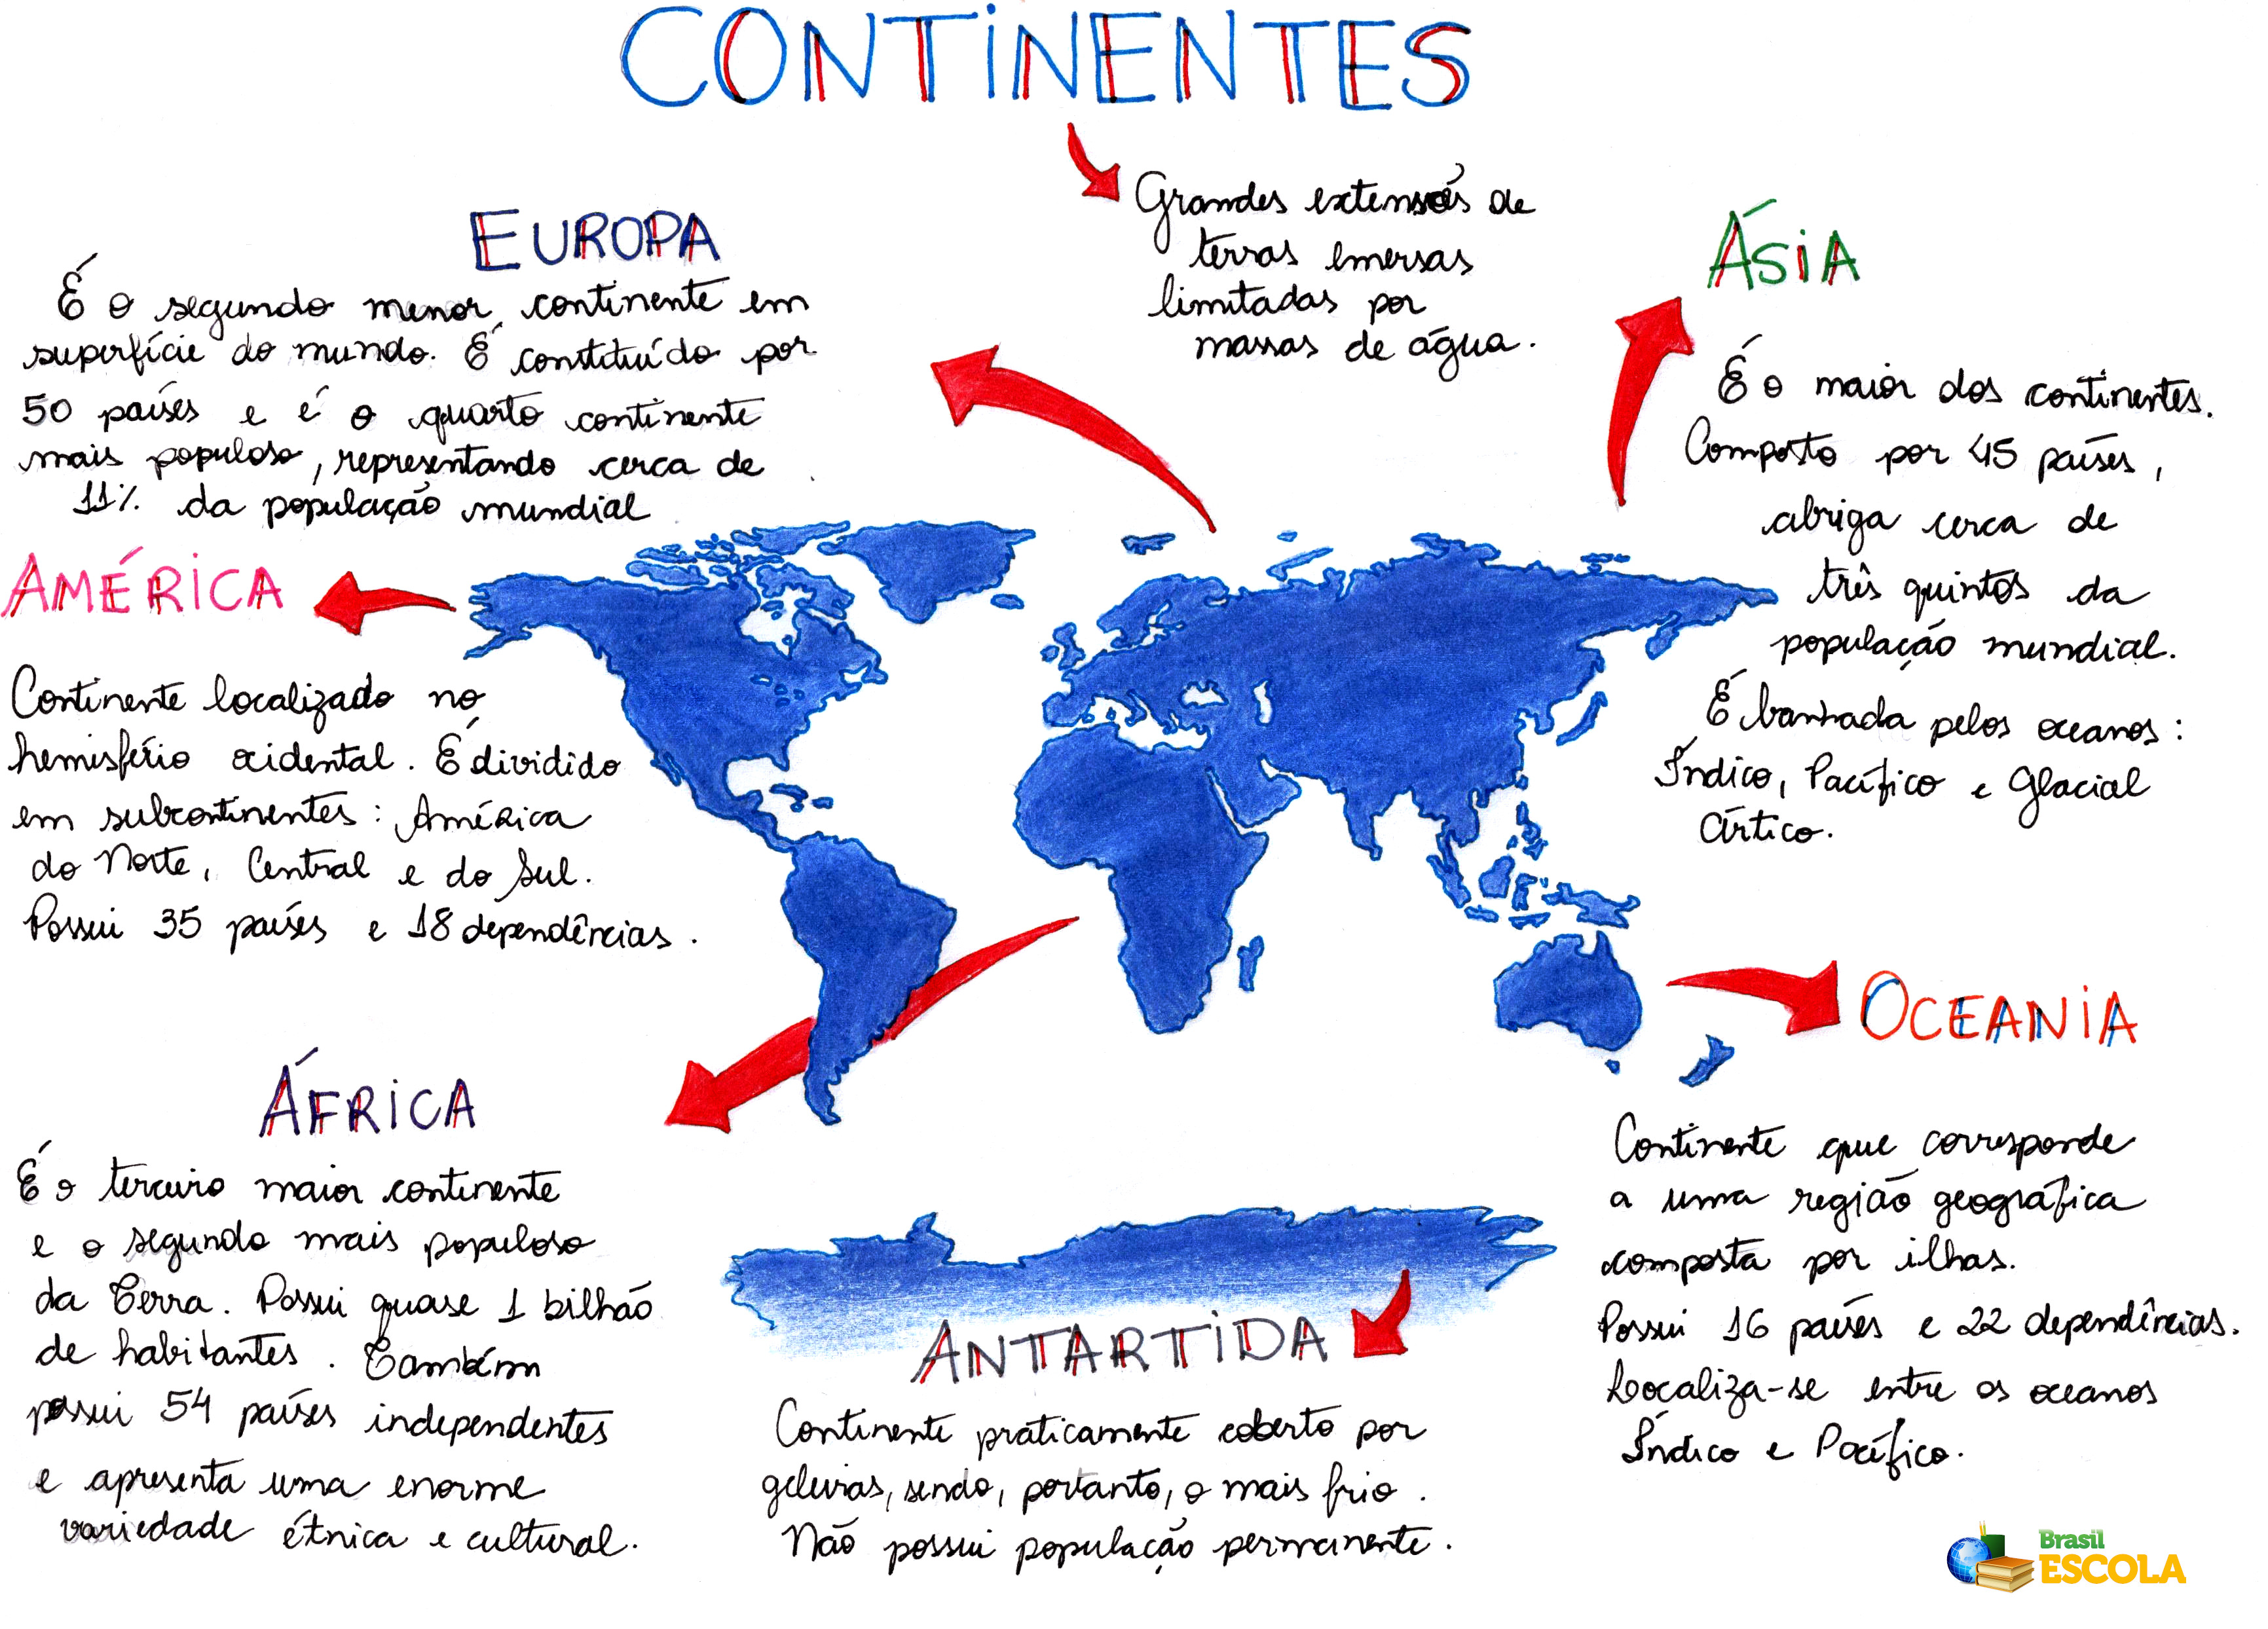 CONTINENTES
Grandes extensões de
terras emersas
limitadas por
massas de água.
EUROPA
É o segundo menor continente em
superfície do mundo. É constituído por
50 países e é o quarto continente
mais populoso, representando cerca de
11% da população mundial
ÁSIA
É o maior dos continentes.
Composto por 45 países,
abriga cerca de
três quintos da
população mundial.
É banhada pelos oceanos:
Índico, Pacífico e Glacial
Ártico.
AMÉRICA
Continente localizado no
hemisfério ocidental. É dividido
em subcontinentes: América
do Norte, Central e do Sul.
Possui 35 países e 18 dependências.
OCEANIA
Continente que corresponde
a uma região geográfica
composta por ilhas.
Possui 16 países e 22 dependências.
Localiza-se entre os oceanos
Índico e Pacífico.
ÁFRICA
É o terceiro maior continente
e o segundo mais populoso
da Terra. Possui quase 1 bilhão
de habitantes. Também
possui 54 países independentes
e apresenta uma enorme
variedade étnica e cultural.
ANTARTIDA
Continente praticamente coberto por
geleiras, sendo, portanto, o mais frio.
Não possui população permanente.
Brasil
ESCOLA